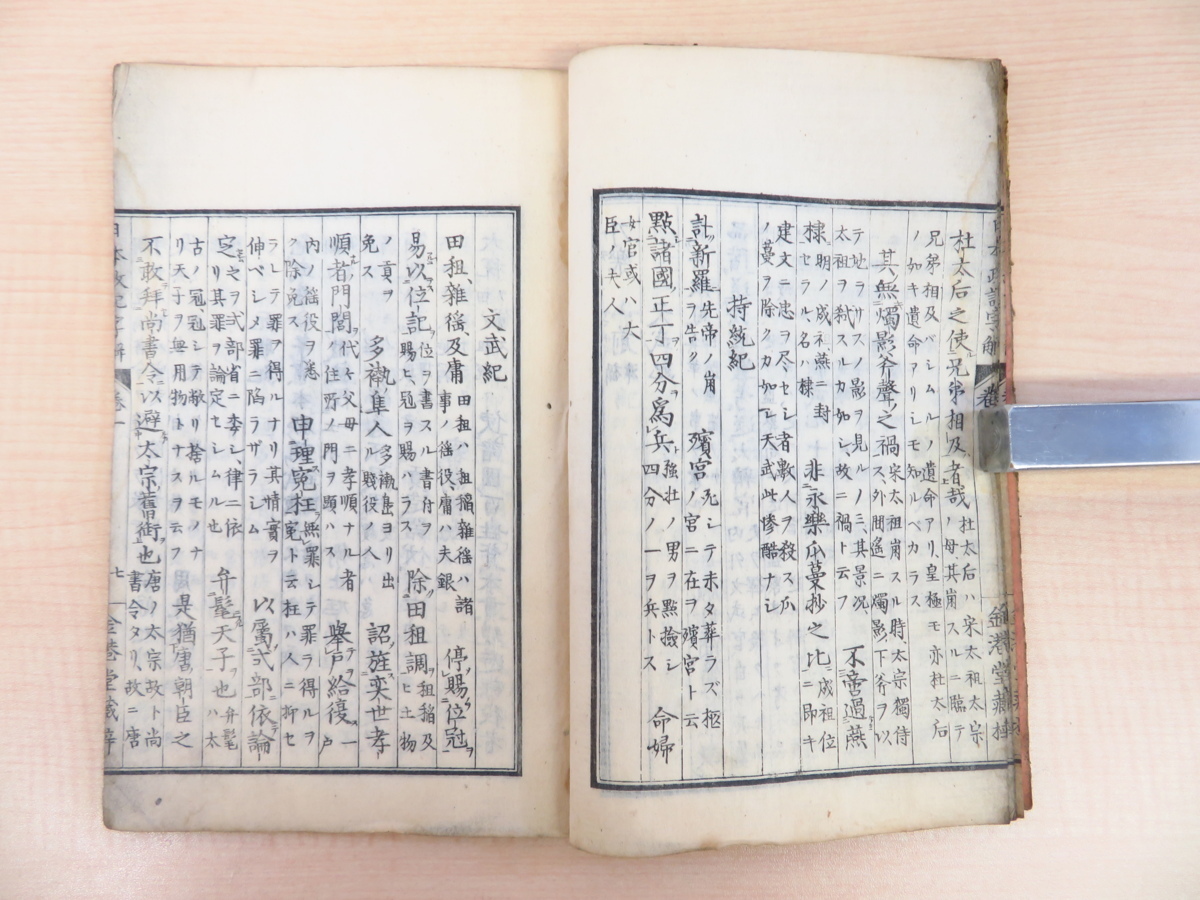 杜太后之使兄弟相及者哉 杜太后ハ宋太祖太宗ノ母其崩スルニ臨テ
兄弟相及バシムルノ遺命アリ、皇極モ亦杜太后ノ如キ遺命アリシモ知ルベカラス
其無燭影斧聲之禍 宋太祖崩スル時、太宗獨侍ス、外間遙ニ燭影ノ下斧ヲ以
テ地ヲサスノ影ヲ見ルノミ、其景況太祖ヲ弑スルカ如シ、故ニ禍ト云フ 不啻過燕
棣 明ノ成祖燕ニ封セラル、名ハ棣 非永樂瓜蔓抄之比 成祖位ニ即キ
建文ニ忠ヲ尽セシ者數人ヲ殺ス瓜ノ蔓ヲ除クカ如シ天武此惨酷ナシ
持統紀
訃新羅 先帝ノ崩ヲ告ク 殯宮 死シテ未タ葬ラズ極ノ宮ニ在ヲ殯宮ト云
點諸國正丁四分爲兵 強壮ノ男ヲ點撿シ四分ノ一ヲ兵トス 命婦
女官或ハ大臣ノ夫人
文武紀
田租、雜徭、及庸 田租ハ租稲雜徭ハ諸事ノ徭役、庸ハ夫銀 停賜位冠
易以位記 位ヲ書スル書付ヲ賜ヒ、冠ヲ賜ハラス 除田租調 租稲及ヒ土物
ノ貢ヲ免ス 多褹隼人 多褹島ヨリ出ル賤役ノ人 詔旌奕世孝
順者門閭 代々父母ニ孝順ナル者ノ住所ノ門ヲ顕ハス 舉戸給復 一戸
内ノ徭役ヲ悉ク除免ス 申理寃枉 無罪シテ罪ヲ得ルヲ寃ト云枉ハ人ニ抑セ
ラレテ罪ヲ得ルナリ其情實ヲ伸ベシメ罪ニ陷ラザラシム 以属式部依論
定 之ヲ式部省ニ季シ律ニ依リ其罪ヲ論定セシムル也 弁髦天子也 弁髦ハ太
古ノ冠、冠シテ敝リ捨ルモノナリ天子ヲ無用物トナスヲ云フ 是猶唐朝臣之
不敢拜尚書令以避太宗舊衘也 唐ノ太宗故ト尚書令タリ、故ニ唐
日本政記字解 卷一 七 金港堂藏梓